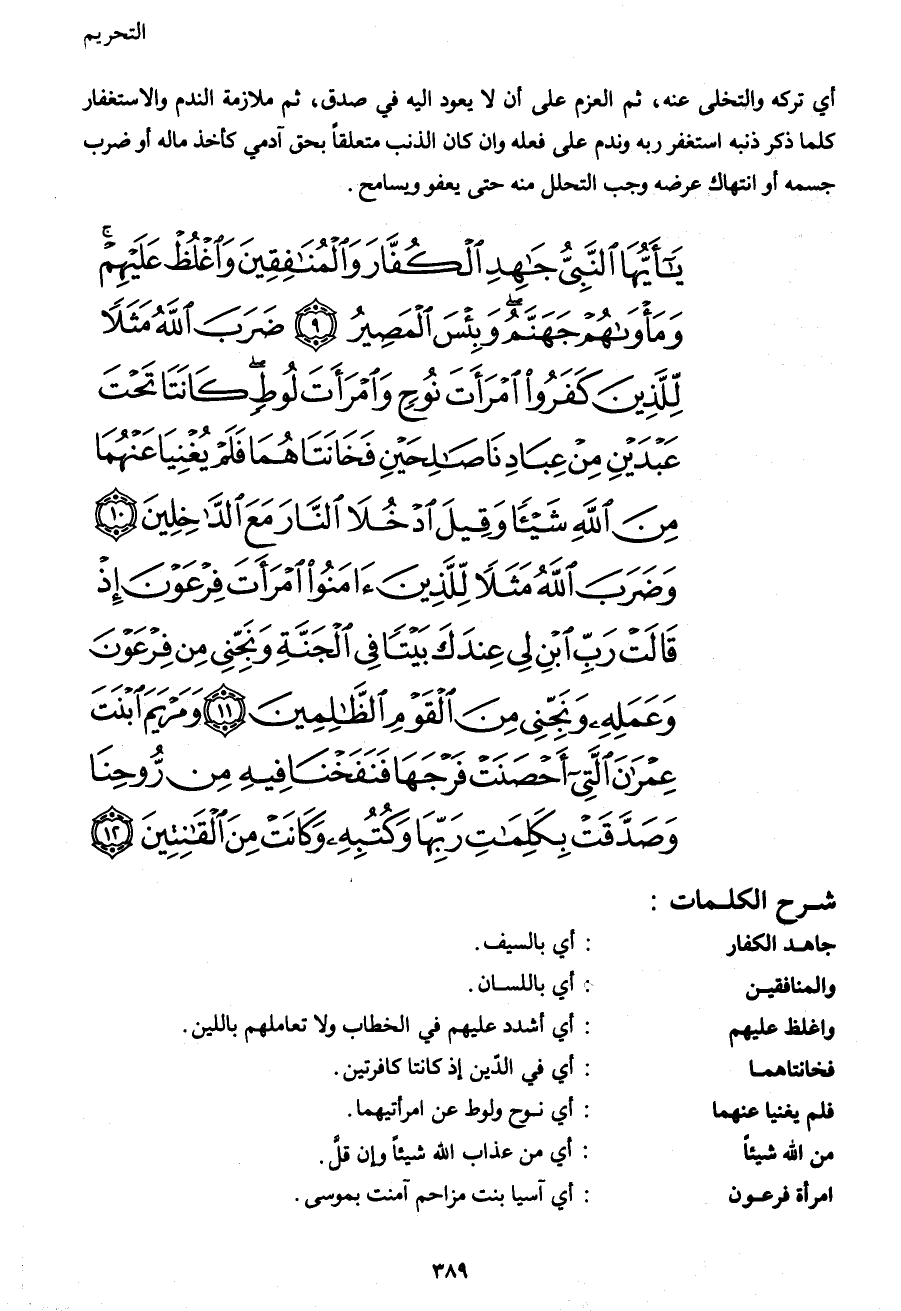 التحريم
أي تركه والتخلى عنه، ثم العزم على أن لا يعود اليه في صدق، ثم ملازمة الندم والاستغفار
كلما ذكر ذنبه استغفر ربه وندم على فعله وان كان الذنب متعلقاً بحق آدمي كأخذ ماله أو ضرب
جسمه أو انتهاك عرضه وجب التحلل منه حتى يعفو ويسامح .
يَٰٓأَيُّهَا ٱلنَّبِيُّ جَٰهِدِ ٱلْكُفَّارَ وَٱلْمُنَٰفِقِينَ وَٱغْلُظْ عَلَيْهِمْ ۚ
وَمَأْوَىٰهُمْ جَهَنَّمُ ۖ وَبِئْسَ ٱلْمَصِيرُ ٩ ضَرَبَ ٱللَّهُ مَثَلًا
لِّلَّذِينَ كَفَرُوا۟ ٱمْرَأَتَ نُوحٍ وَٱمْرَأَتَ لُوطٍ ۖ كَانَتَا تَحْتَ
عَبْدَيْنِ مِنْ عِبَادِنَا صَٰلِحَيْنِ فَخَانَتَاهُمَا فَلَمْ يُغْنِيَا عَنْهُمَا
مِنَ ٱللَّهِ شَيْـًٔا وَقِيلَ ٱدْخُلَا ٱلنَّارَ مَعَ ٱلدَّٰخِلِينَ ١٠
وَضَرَبَ ٱللَّهُ مَثَلًا لِّلَّذِينَ ءَامَنُوا۟ ٱمْرَأَتَ فِرْعَوْنَ إِذْ
قَالَتْ رَبِّ ٱبْنِ لِى عِندَكَ بَيْتًا فِى ٱلْجَنَّةِ وَنَجِّنِى مِن فِرْعَوْنَ
وَعَمَلِهِۦ وَنَجِّنِى مِنَ ٱلْقَوْمِ ٱلظَّٰلِمِينَ ١١ وَمَرْيَمَ ٱبْنَتَ
عِمْرَٰنَ ٱلَّتِىٓ أَحْصَنَتْ فَرْجَهَا فَنَفَخْنَا فِيهِ مِن رُّوحِنَا
وَصَدَّقَتْ بِكَلِمَٰتِ رَبِّهَا وَكُتُبِهِۦ وَكَانَتْ مِنَ ٱلْقَٰنِتِينَ ١٢
شرح الكلمات :
جاهد الكفار : أي بالسيف.
والمنافقين : أي باللسان .
واغلظ عليهم : أي أشدد عليهم في الخطاب ولا تعاملهم باللين.
فخانتاهما : أي في الدّين إذ كانتا كافرتين.
فلم يغنيا عنهما : أي نوح ولوط عن امرأتيهما.
من الله شيئاً : أي من عذاب الله شيئاً وإن قلَّ.
امرأة فرعون : أي آسيا بنت مزاحم آمنت بموسى .
٣٨٩